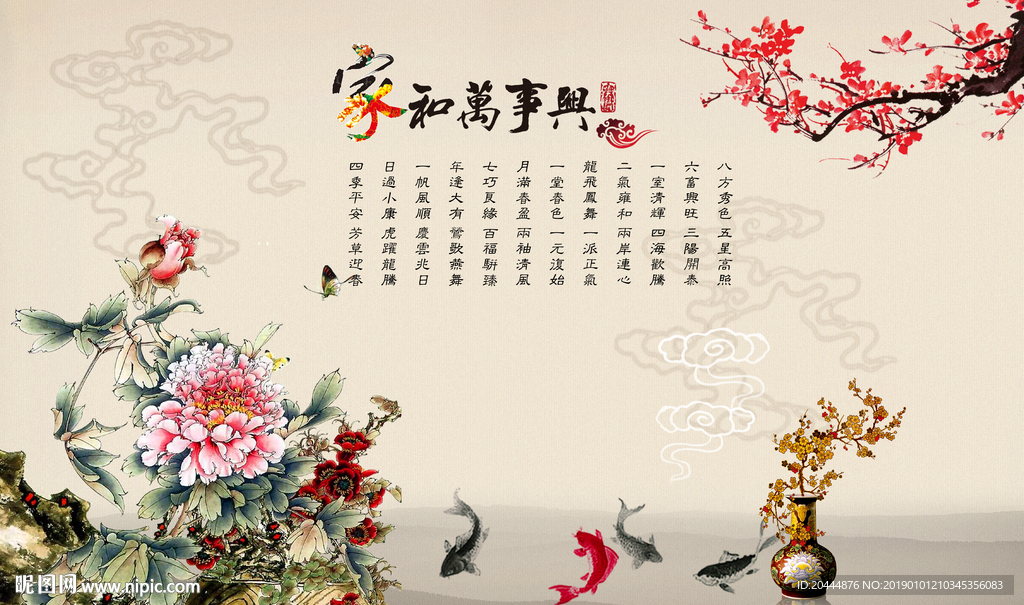 家和萬事興
八方秀色 五星高照
六畜興旺 三陽開泰
一室清輝 四海歡騰
二氣雍和 兩岸連心
龍飛鳳舞 一派正氣
一堂春色 一元復始
月滿春盈 兩袖清風
七巧良緣 百福駢臻
年逢大有 鶯歌燕舞
一帆風順 慶雲兆日
日過小康 虎躍龍騰
四季平安 芳草迎春
昵图网 www.nipic.com
ID:20444876 NO:20190101210345356083